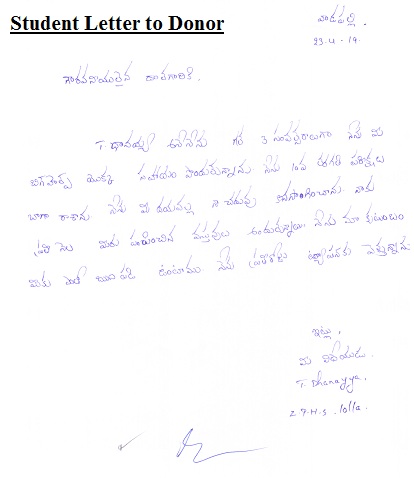 Student Letter to Donor
వాడపల్లి.
23-4-19.
గౌరవనీయులైన దాతగారికి.
T. ధానయ్య అనే నేను గత 3 సంవత్సరాలుగా నేను మీ
యొక్క సహాయం పొందుతున్నాను. నేను 10వ తరగతి పరీక్షలు
బాగా రాశాను. నేను మీ దయవల్ల నా చదువు కొనసాగించాను. నాకు
ప్రతి నెల మీరు పంపించిన వస్తువులు అందుతున్నాయి. నేను మా కుటుంబం
మీకు ఉంటాము. నేను ప్రతిరోజు ట్యూషన్‌కు వెళ్తున్నాను.
ఇట్లు,
మీ విధేయుడు.
T. Dhanayya,
Z.P.H.S. Lolla.